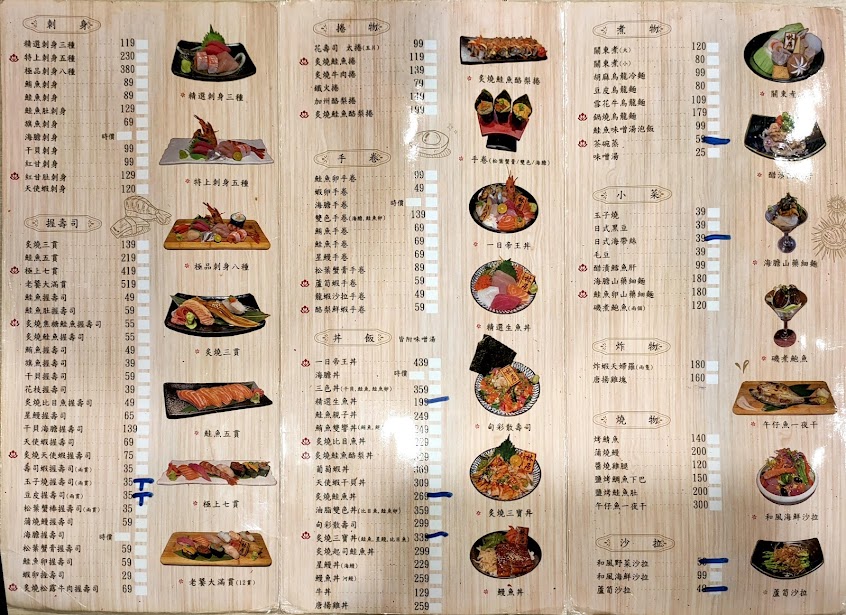 刺身
精選刺身三種 119
特上刺身五種 230
極品刺身八種 380
鮪魚刺身 89
鮭魚刺身 89
鮭魚肚刺身 129
旗魚刺身 69
海膽刺身 時價
干貝刺身 99
紅甘刺身 99
紅甘肚刺身 129
天使蝦刺身 120
精選刺身三種
特上刺身五種
極品刺身八種
握壽司
炙燒三貫 139
鮭魚五貫 219
極上七貫 419
老饕大滿貫 519
鮭魚握壽司 49
鮭魚肚握壽司 59
炙燒焦糖鮭魚握壽司 55
炙燒鮭魚握壽司 55
鮪魚握壽司 49
旗魚握壽司 39
干貝握壽司 59
花枝握壽司 39
炙燒比目魚握壽司 49
星鰻握壽司 65
干貝海膽握壽司 139
天使蝦握壽司 69
炙燒天使蝦握壽司 75
壽司蝦握壽司(兩貫) 35
玉子燒握壽司(兩貫) 35
豆皮握壽司(兩貫) 35
松葉蟹棒握壽司(兩貫) 35
蒲燒鰻握壽司 59
海膽握壽司 時價
松葉蟹膏握壽司 59
鮭魚卵握壽司 59
蝦卵握壽司 29
炙燒松露牛肉握壽司 69
炙燒三貫
鮭魚五貫
極上七貫
老饕大滿貫(12貫)
捲物
花壽司 太捲(五片) 99
炙燒鮭魚捲 119
炙燒牛肉捲 139
鐵火捲
加州酪梨捲 199
炙燒鮭魚酪梨捲 199
炙燒鮭魚酪梨捲
手卷
鮭魚卵手卷 99
蝦卵手卷 49
海膽手卷 時價
雙色手卷(海膽,鮭魚卵) 139
鮪魚手卷 69
鮭魚手卷 69
星鰻手卷 89
松葉蟹膏手卷 89
蘆筍蝦手卷 59
龍蝦沙拉手卷 49
酪梨鮮蝦手卷 59
手卷(松葉蟹膏/雙色/海膽)
丼飯 皆附味噌湯
一日帝王丼 439
海膽丼 時價
三色丼(干貝,鮭魚,鮭魚卵) 359
精選生魚丼 199
鮭魚親子丼 249
鮪魚雙響丼
炙燒比目魚丼
炙燒鮭魚酪梨丼
葡萄蝦丼 369
天使蝦干貝丼 309
炙燒鮭魚丼 269
油脂雙色丼(比目魚,鮭魚卵) 359
旬彩散壽司 299
炙燒三寶丼(鮭魚,星鰻,比目魚)
炙燒起司鮭魚丼
星鰻丼(海鰻)
鰻魚丼(河鰻)
牛丼 129
唐揚雞丼 259
一日帝王丼
精選生魚丼
旬彩散壽司
炙燒三寶丼
鰻魚丼
煮物
關東煮(大) 120
關東煮(小) 80
胡麻烏龍冷麵 99
豆皮烏龍麵 80
雪花牛烏龍麵 179
鍋燒烏龍麵 109
鮭魚味噌湯泡飯 99
茶碗蒸 59
味噌湯 25
關東煮
小菜
玉子燒 39
日式黑豆 39
日式海帶絲 39
毛豆 39
醋漬鱈魚肝 99
海膽山藥細麵 180
鮭魚卵山藥細麵 180
磯煮鮑魚(兩個) 120
海膽山藥細麵
磯煮鮑魚
炸物
炸蝦天婦羅(兩隻) 180
唐揚雞塊 160
午仔魚一夜干
燒物
烤鯖魚 140
蒲燒鰻 200
醬燒雞腿 120
鹽烤鯛魚下巴 150
鹽烤鮭魚肚 200
午仔魚一夜干 300
和風海鮮沙拉
沙拉
和風野菜沙拉
和風海鮮沙拉 99
蘆筍沙拉 49
蘆筍沙拉